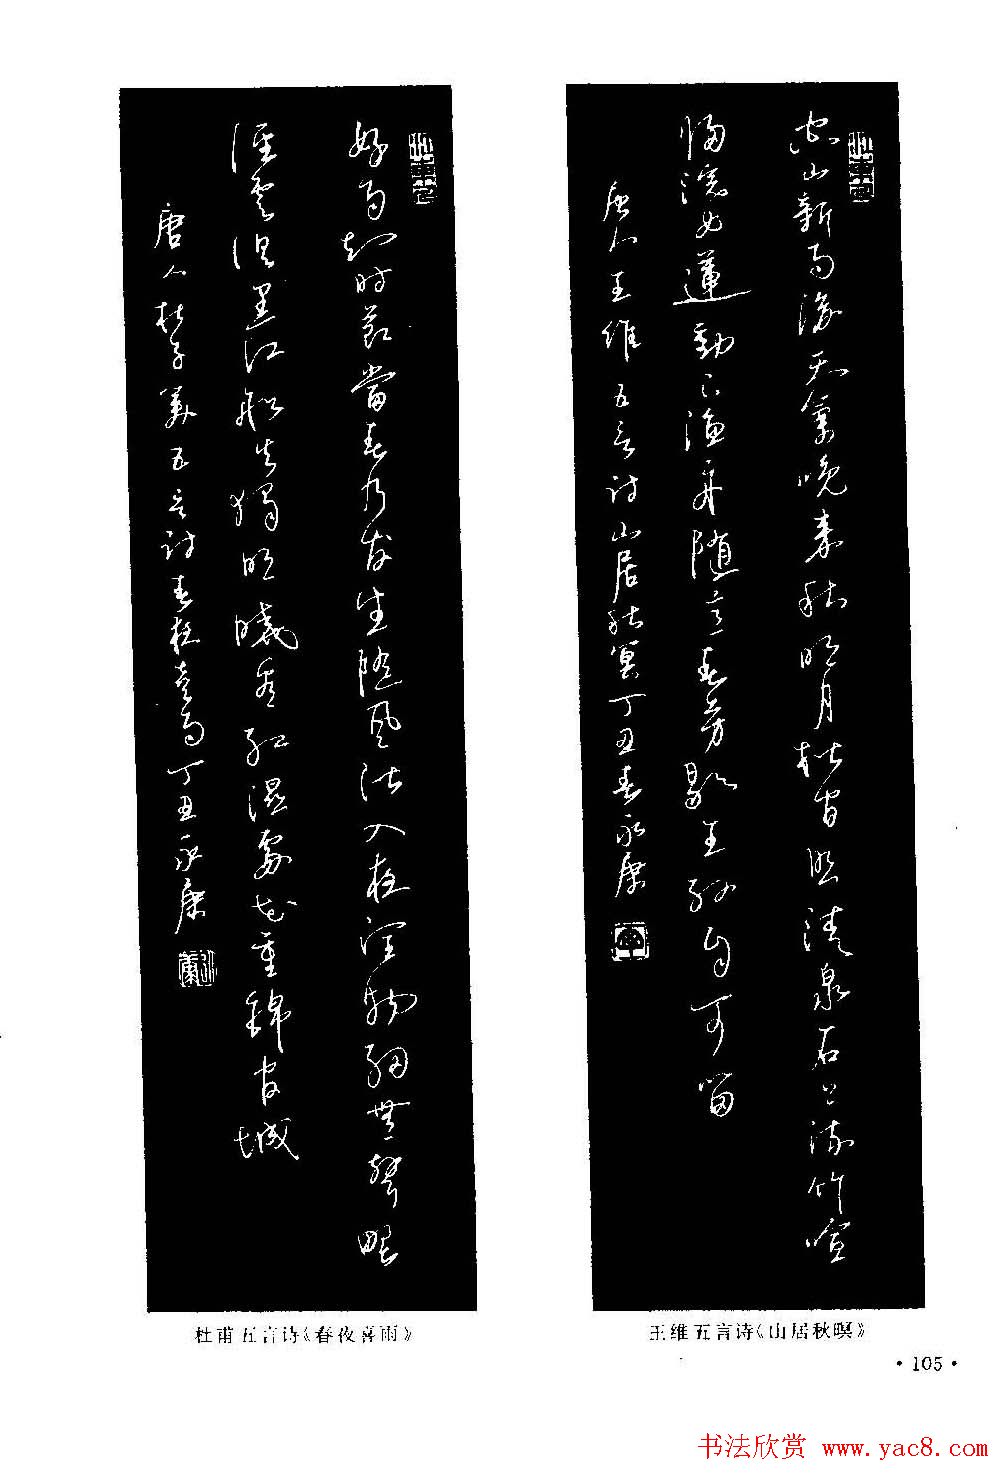 空山新雨後天氣晚来秋明月松间照清泉石上流竹喧
歸浣女蓮動下漁舟随意春芳歇王孫自可留
唐人王維五言诗山居秋冥丁丑春永康
王维五言诗《山居秋暝》
好雨知时節當春乃发生随風潜入夜润物細無聲野
徑雲俱黑江船火獨明曉看红濕處花重錦官城
唐人杜子美五言诗春夜喜雨丁丑永康
杜甫五言诗《春夜喜雨》
·105·
书法欣赏 www.yac8.com